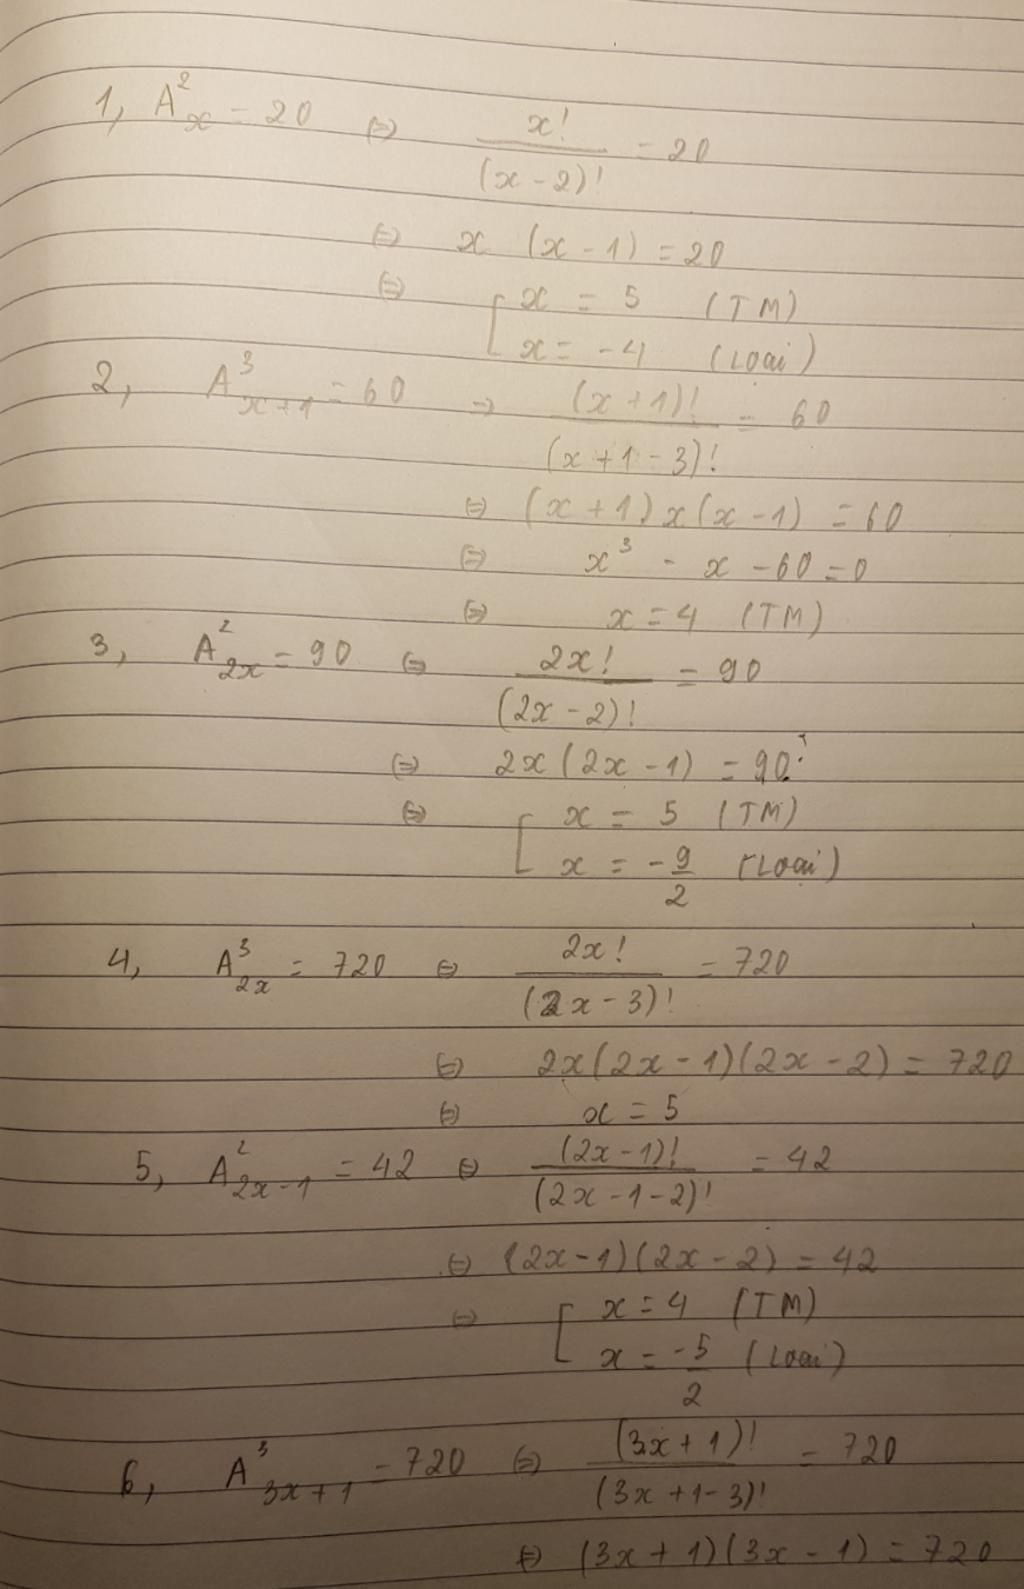 1, A²ₓ = 20 ⇔ x! / (x - 2)! = 20
⇔ x (x - 1) = 20
⇔ [ x = 5 (TM)
x = -4 (Loại)
2, A³ₓ₊₁ = 60 ⇒ (x + 1)! / (x + 1 - 3)! = 60
⇔ (x + 1) x (x - 1) = 60
⇔ x³ - x - 60 = 0
⇔ x = 4 (TM)
3, A²₂ₓ = 90 ⇔ 2x! / (2x - 2)! = 90
⇔ 2x (2x - 1) = 90
⇔ [ x = 5 (TM)
x = -9/2 (Loại)
4, A³₂ₓ = 720 ⇔ 2x! / (2x - 3)! = 720
⇔ 2x (2x - 1)(2x - 2) = 720
⇔ x = 5
5, A²₂ₓ₋₁ = 42 ⇔ (2x - 1)! / (2x - 1 - 2)! = 42
⇔ (2x - 1)(2x - 2) = 42
⇔ [ x = 4 (TM)
x = -5/2 (Loại)
6, A³₃ₓ₊₁ = 720 ⇔ (3x + 1)! / (3x + 1 - 3)! = 720
⇔ (3x + 1)(3x - 1) = 720